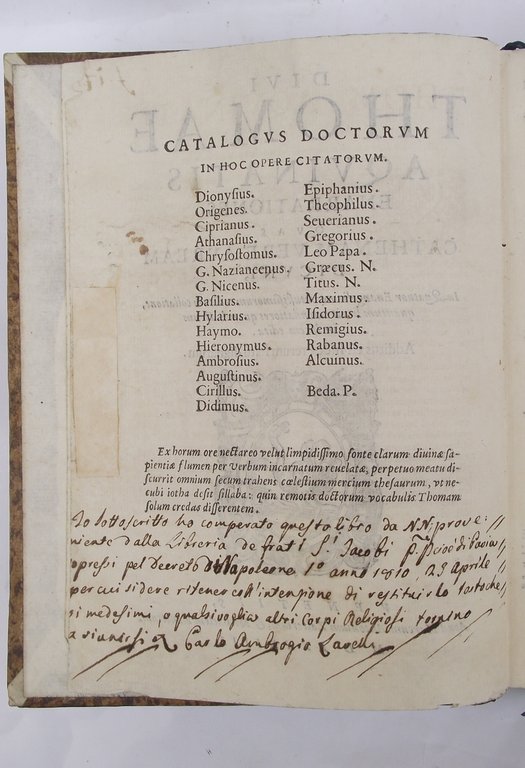 CATALOGVS DOCTORVM
IN HOC OPERE CITATORVM.
Dionysius.
Origenes.
Ciprianus.
Athanasius.
Chrysostomus.
G. Naziancenus.
G. Nicenus.
Basilius.
Hylarius.
Haymo.
Hieronymus.
Ambrosius.
Augustinus.
Cirillus.
Didimus.
Epiphanius.
Theophilus.
Seuerianus.
Gregorius.
Leo Papa.
Græcus. N.
Titus. N.
Maximus.
Isidorus.
Remigius.
Rabanus.
Alcuinus.
Beda. P.
Ex horum ore nectareo velut limpidissimo fonte clarum diuinæ sa-
pientiæ flumen per Verbum incarnatum reuelatæ, perpetuo meatu di-
scurrit omnium secum trahens cœlestium mercium thesaurum, vt ne-
cubi iotha desit sillaba: quin remotis doctorum vocabulis Thomam
solum credas disserentem.
Io sottoscritto ho comperato questo libro da N.N. prove:
niente dalla Libreria de frati S.ti Jacobi di Pavia
opressi pel Decreto Napoleone 1º anno 1810, 25 Aprile
per cui sidere ritener coll'intenzione di restituirlo tostoche
si medesimi, o qualsivoglia altri Corpi Religiosi tornino
a riunirsi Carlo Ambrogio